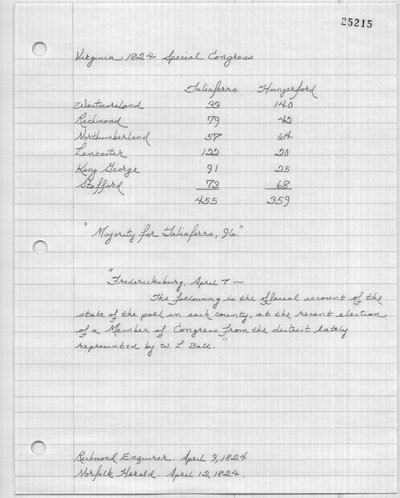 25215
Virginia 1824 Special Congress
Taliaferro Hungerford
Westmoreland 33 140
Richmond 79 42
Northumberland 57 64
Lancaster 122 20
King George 91 25
Stafford 73 68
455 359
"Majority for Taliaferro, 96."
"Fredericksburg, April 7 —
The following is the official account of the
state of the poll in each county, at the recent election
of a Member of Congress from the district lately
represented by W. L. Ball."
Richmond Enquirer. April 9, 1824
Norfolk Herald. April 12, 1824.